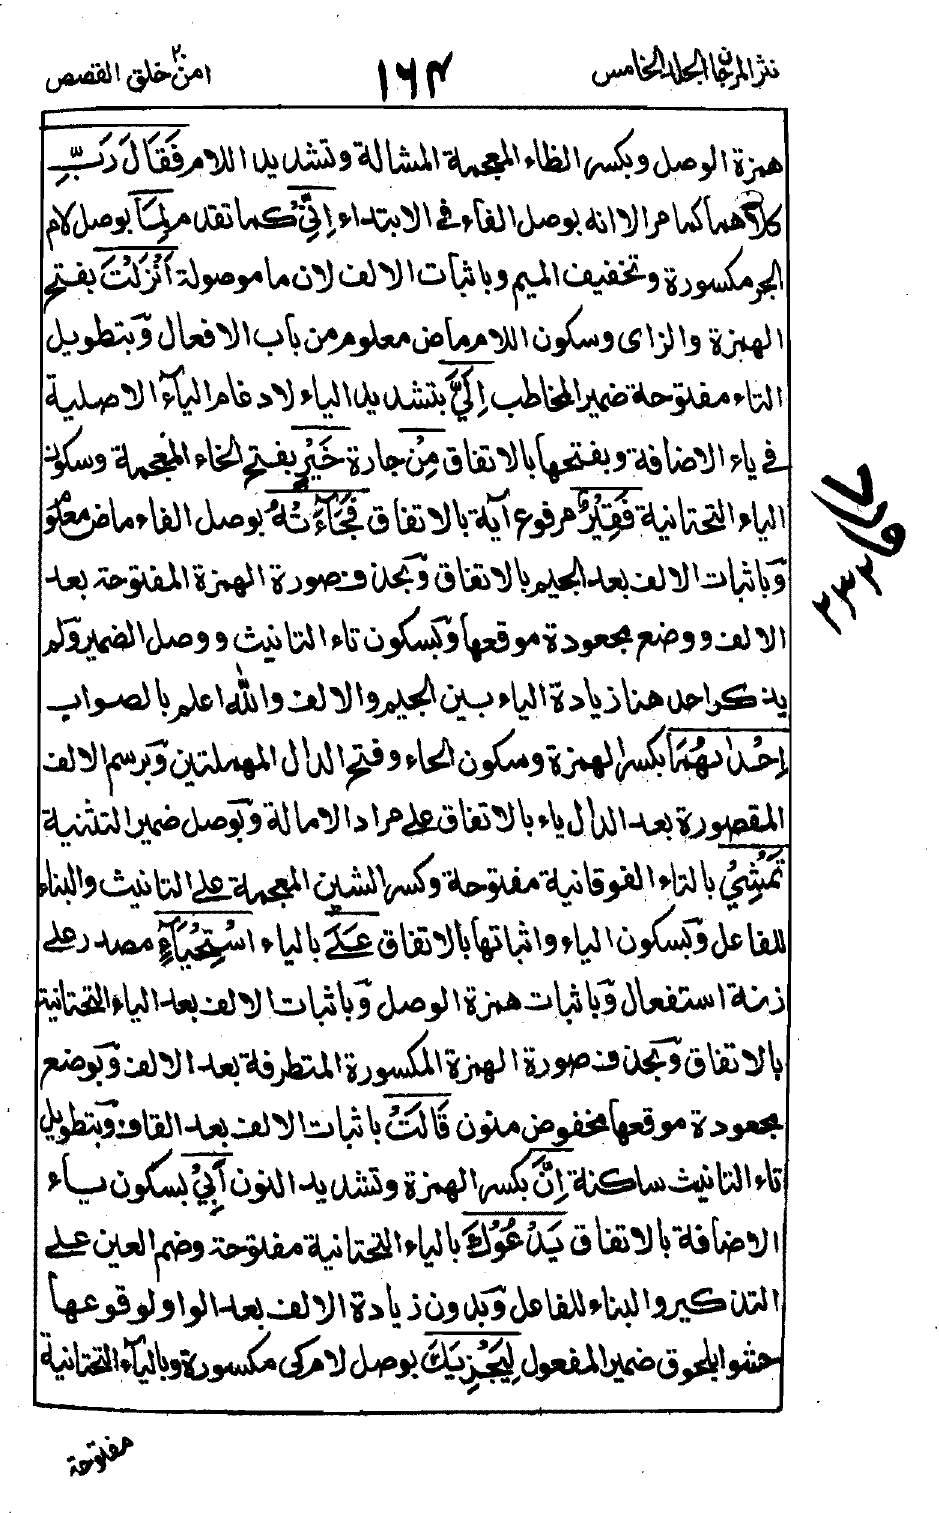 نثر المرجان الجلد الخامس
١٦٤
امن خلق ٢٠ القصص
همزة الوصل وبكسر الظاء المعجمة المشالة وتشديد اللام فَقَالَ رَبِّ
كلاهما كما مر الا انه بوصل الفاء فى الابتداء اِنِّىْ كما تقدم لِمَآ بوصل لام
الجر مكسورة وتخفيف الميم وباثبات الالف لان ما موصولة اَنْزَلْتَ بفتح
الهمزة والزاى وسكون اللام ماض معلوم من باب الافعال وَبتطويل
التاء مفتوحة ضمير المخاطب اِلَىَّ بتشديد الياء لادغام الياء الاصلية
فى ياء الاضافة وبفتحها بالاتفاق مِنْ جارة خَيْرٍ بفتح الخاء المعجمة وسكون
الياء التحتانية فَقِيْرٌ مرفوع آية بالاتفاق فَجَآءَتْهُ بوصل الفاء ماض معلوم
وَباثبات الالف بعد الجيم بالاتفاق وَبحذف صورة الهمزة المفتوحة بعد
الالف ووضع مجعودة موقعها وَبسكون تاء التانيث ووصل الضمير وَلم
يذكر احد هنا زيادة الياء بين الجيم والالف والله اعلم بالصواب
اِحْدٰىهُمَا بكسر الهمزة وسكون الحاء وفتح الدال المهملتين وَبرسم الالف
المقصورة بعد الدال ياء بالاتفاق على مراد الامالة وَبوصل ضمير التثنية
تَمْشِىْ بالتاء الفوقانية مفتوحة وكسر الشين المعجمة على التانيث والبناء
للفاعل وَبسكون الياء واثباتها بالاتفاق عَلَى بالياء اسْتِحْيَآءٍ مصدر على
زنة استفعال وَباثبات همزة الوصل وَباثبات الالف بعد الياء التحتانية
بالاتفاق وَبحذف صورة الهمزة المكسورة المتطرفة بعد الالف وَبوضع
مجعودة موقعها مخفوض منون قَالَتْ باثبات الالف بعد القاف وَبتطويل
تاء التانيث ساكنة اِنَّ بكسر الهمزة وتشديد النون اَبِىْ بسكون ياء
الاضافة بالاتفاق يَدْعُوْكَ بالياء التحتانية مفتوحة وضم العين على
التذكير والبناء للفاعل وَبدون زيادة الالف بعد الواو لوقوعها
حشوا بلحوق ضمير المفعول لِيَجْزِيَكَ بوصل لام كى مكسورة وبالياء التحتانية
مفتوحة